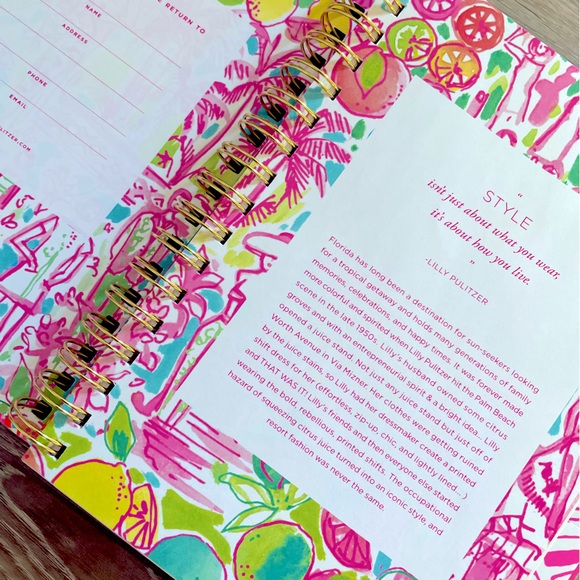 RETURN TO
NAME
ADDRESS
PHONE
EMAIL
PULITZER.COM
“
STYLE
isn't just about what you wear,
it's about how you live.
”
-LILLY PULITZER
Florida has long been a destination for sun-seekers looking
for a tropical getaway and holds many generations of family
memories, celebrations, and happy times. It was forever made
more colorful and spirited when Lilly Pulitzer hit the Palm Beach
scene in the late 1950s. Lilly's husband owned some citrus
groves and with an entrepreneurial spirit & a bright idea... Lilly
opened a juice stand. Not just any juice stand but just off of
Worth Avenue in Via Mizner. Her clothes were getting ruined
by the juice stains, so Lilly had her dressmaker create a printed
shift dress for her (effortless, zip-up, chic, and lightly lined...)
and THAT WAS IT. Lilly's friends and then everyone else started
wearing the bold, rebellious, printed shifts. The occupational
hazard of squeezing citrus juice turned into an iconic style, and
resort fashion was never the same.